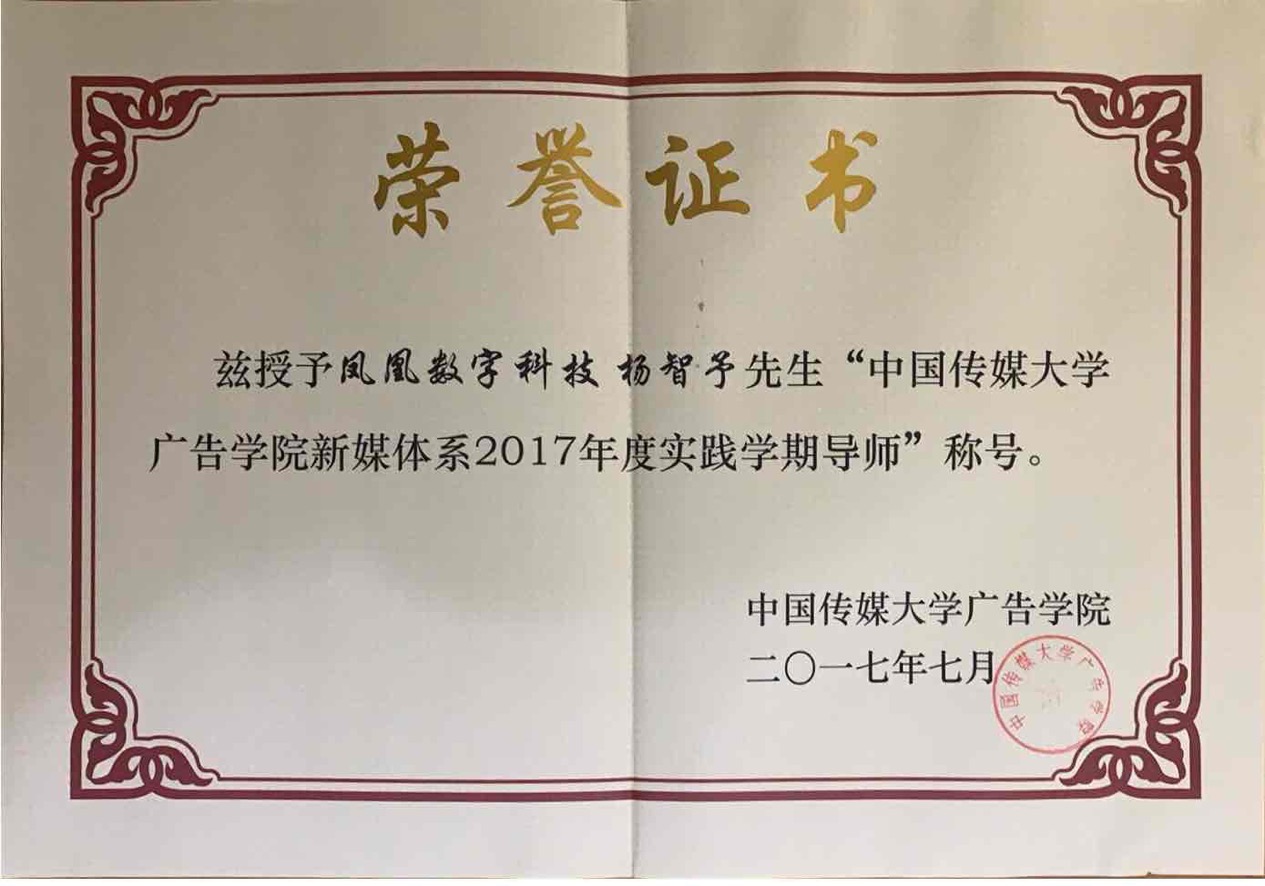 荣誉证书
兹授予凤凰数字科技 杨智予先生“中国传媒大学
广告学院新媒体系2017年度实践学期导师”称号。
中国传媒大学广告学院
二〇一七年七月
中国传媒大学广告学院